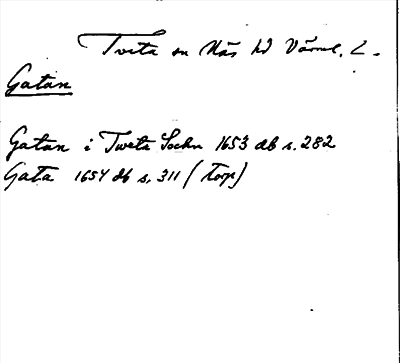 Tveta sn Näs hd Värml. L.
Gatan
Gatan i Tweta Sochn 1653 db s. 282
Gata 1654 db s. 311 (torp)